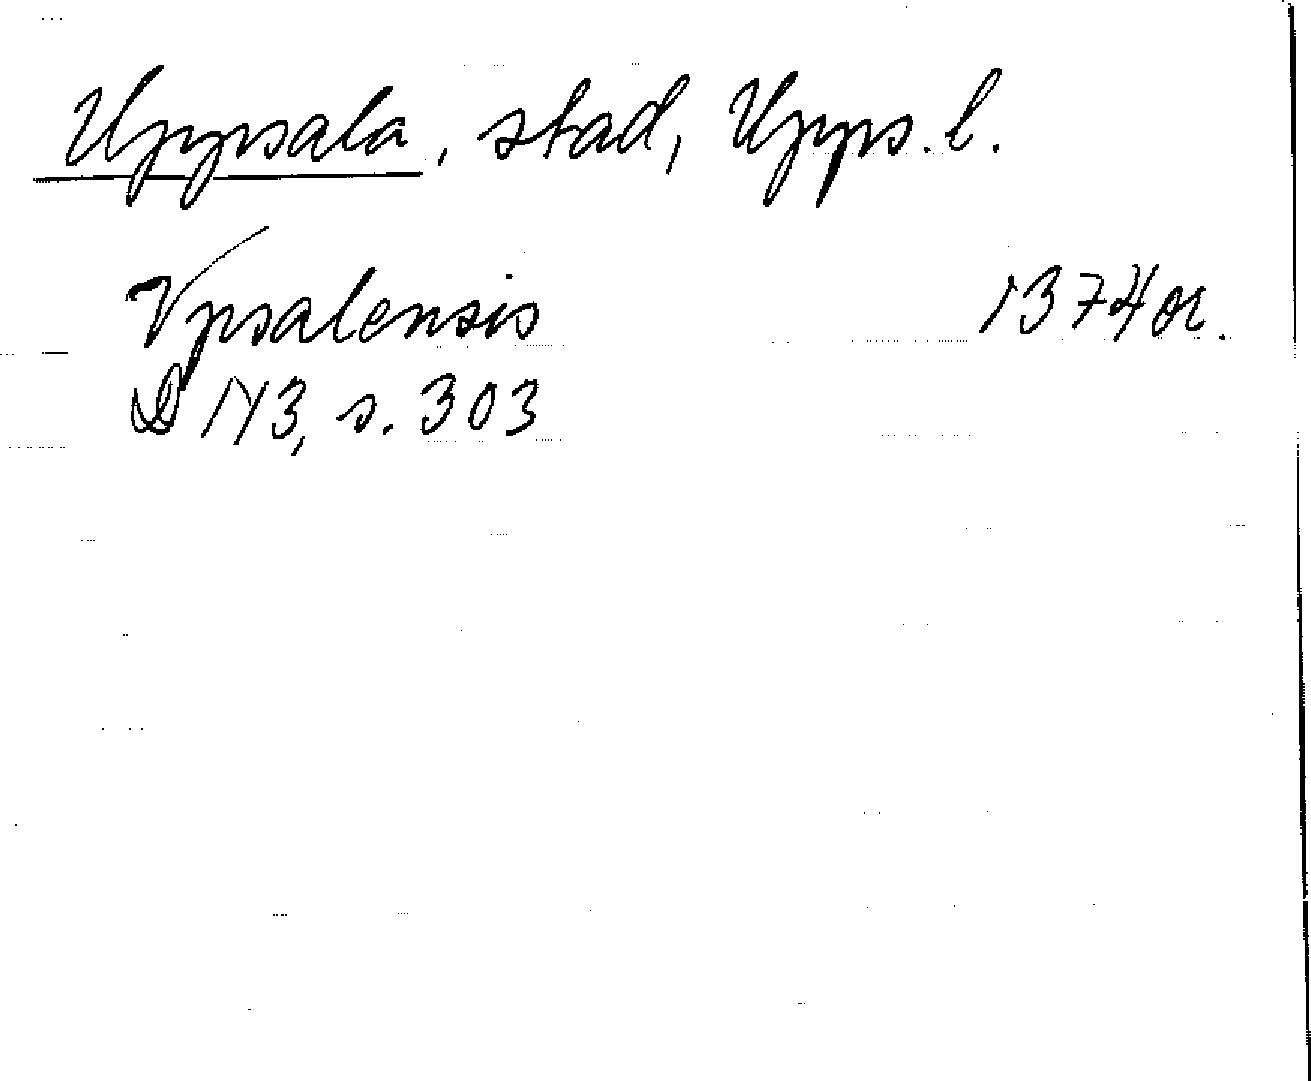 Uppsala, stad, Upps. l.
Vpsalensis 1374 or.
D 173, s. 303